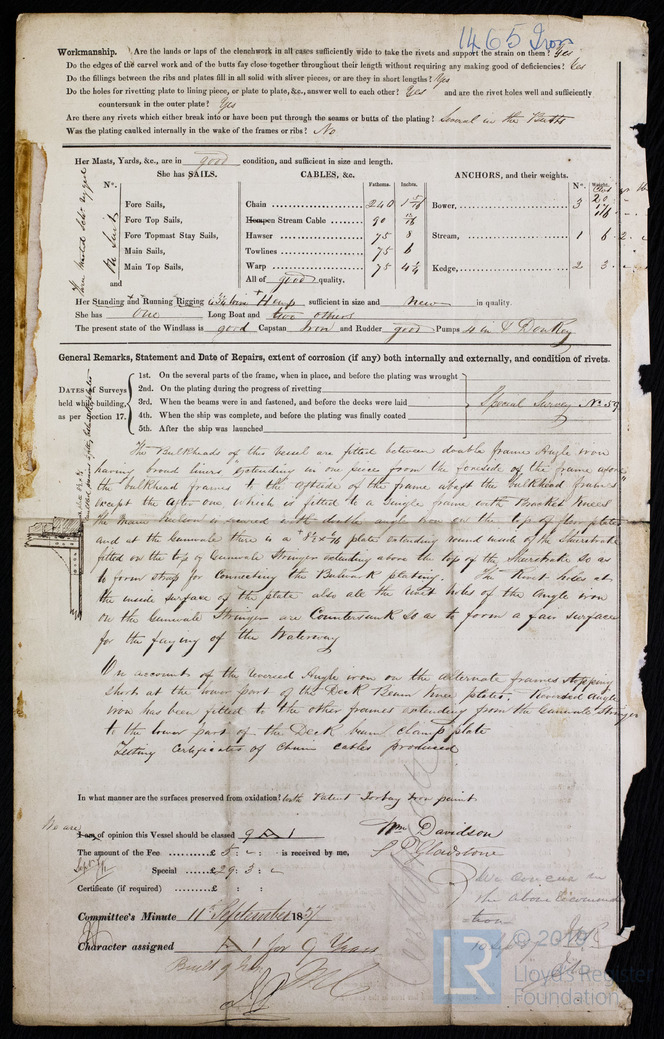 1465 Iron
Workmanship. Are the lands or laps of the clenchwork in all cases sufficiently wide to take the rivets and support the strain on them? Yes
Do the edges of the carvel work and of the butts fay close together throughout their length without requiring any making good of deficiencies? Yes
Do the fillings between the ribs and plates fill in all solid with sliver pieces, or are they in short lengths? Yes
Do the holes for rivetting plate to lining piece, or plate to plate, &c., answer well to each other? Yes and are the rivet holes well and sufficiently
countersunk in the outer plate? Yes
Are there any rivets which either break into or have been put through the seams or butts of the plating? Several in the Butts
Was the plating caulked internally in the wake of the frames or ribs? No
Her Masts, Yards, &c., are in good condition, and sufficient in size and length.
She has SAILS. CABLES, &c. ANCHORS, and their weights.
N°. Fathoms. Inches. N°. Weight.
Fore Sails, Chain 240 Bower, 3
Fore Top Sails, Hempen Stream Cable 90
Fore Topmast Stay Sails, Hawser 75 8 Stream, 1 6 2
Main Sails, Towlines 75 6
Main Top Sails, Warp 75 4¼ Kedge, 2 3
and All of good quality.
Her Standing and Running Rigging Hemp sufficient in size and new in quality.
She has one Long Boat and two others
The present state of the Windlass is good Capstan Iron and Rudder good Pumps 4 in & Donkey
General Remarks, Statement and Date of Repairs, extent of corrosion (if any) both internally and externally, and condition of rivets.
DATES of Surveys held while building, as per Section 17.
1st. On the several parts of the frame, when in place, and before the plating was wrought
2nd. On the plating during the progress of rivetting
3rd. When the beams were in and fastened, and before the decks were laid Special Survey No. 59
4th. When the ship was complete, and before the plating was finally coated
5th. After the ship was launched
The Bulkheads of this vessel are fitted between double frame Angle iron
having broad liners extending in one piece from the foreside of the frame afore
the bulkhead frames to the aftside of the frame abaft the bulkhead frames
except the after one which is fitted to a single frame with Bracket Knees
The Main Keelson is rivetted with double angle iron on the top of floor plates
and at the Gunwale there is a plate extending round inside of the Sheerstrake
fitted on the top of Gunwale Stringer extending above the top of the Sheerstrake so as
to form strap for connecting the Bulwark plating. The Rivet holes at
the inside surface of the plate also all the rivet holes of the Angle iron
on the Gunwale Stringer are Countersunk so as to form a fair surface
for the faying of the Waterway
On account of the reversed Angle iron on the alternate frames stopping
short at the lower part of the Deck Beam knee plates, Reversed Angle
iron has been fitted to the other frames extending from the Gunwale Stringer
to the lower part of the Deck beam clamp plate
Testing Certificates of Chain cables produced
In what manner are the surfaces preserved from oxidation? with Patent Torbay Iron paint
We are
I am of opinion this Vessel should be classed 9 A 1
Wm Davidson
The amount of the Fee £ 5 : - : is received by me,
Special £29 : 3 : -
Certificate (if required) £ : :
We concur in
the above recommenda
tion
Committee's Minute 11th September 1857
Character assigned A 1 for 9 Years
Built of Iron
© 2019
LR
Lloyd's Register
Foundation